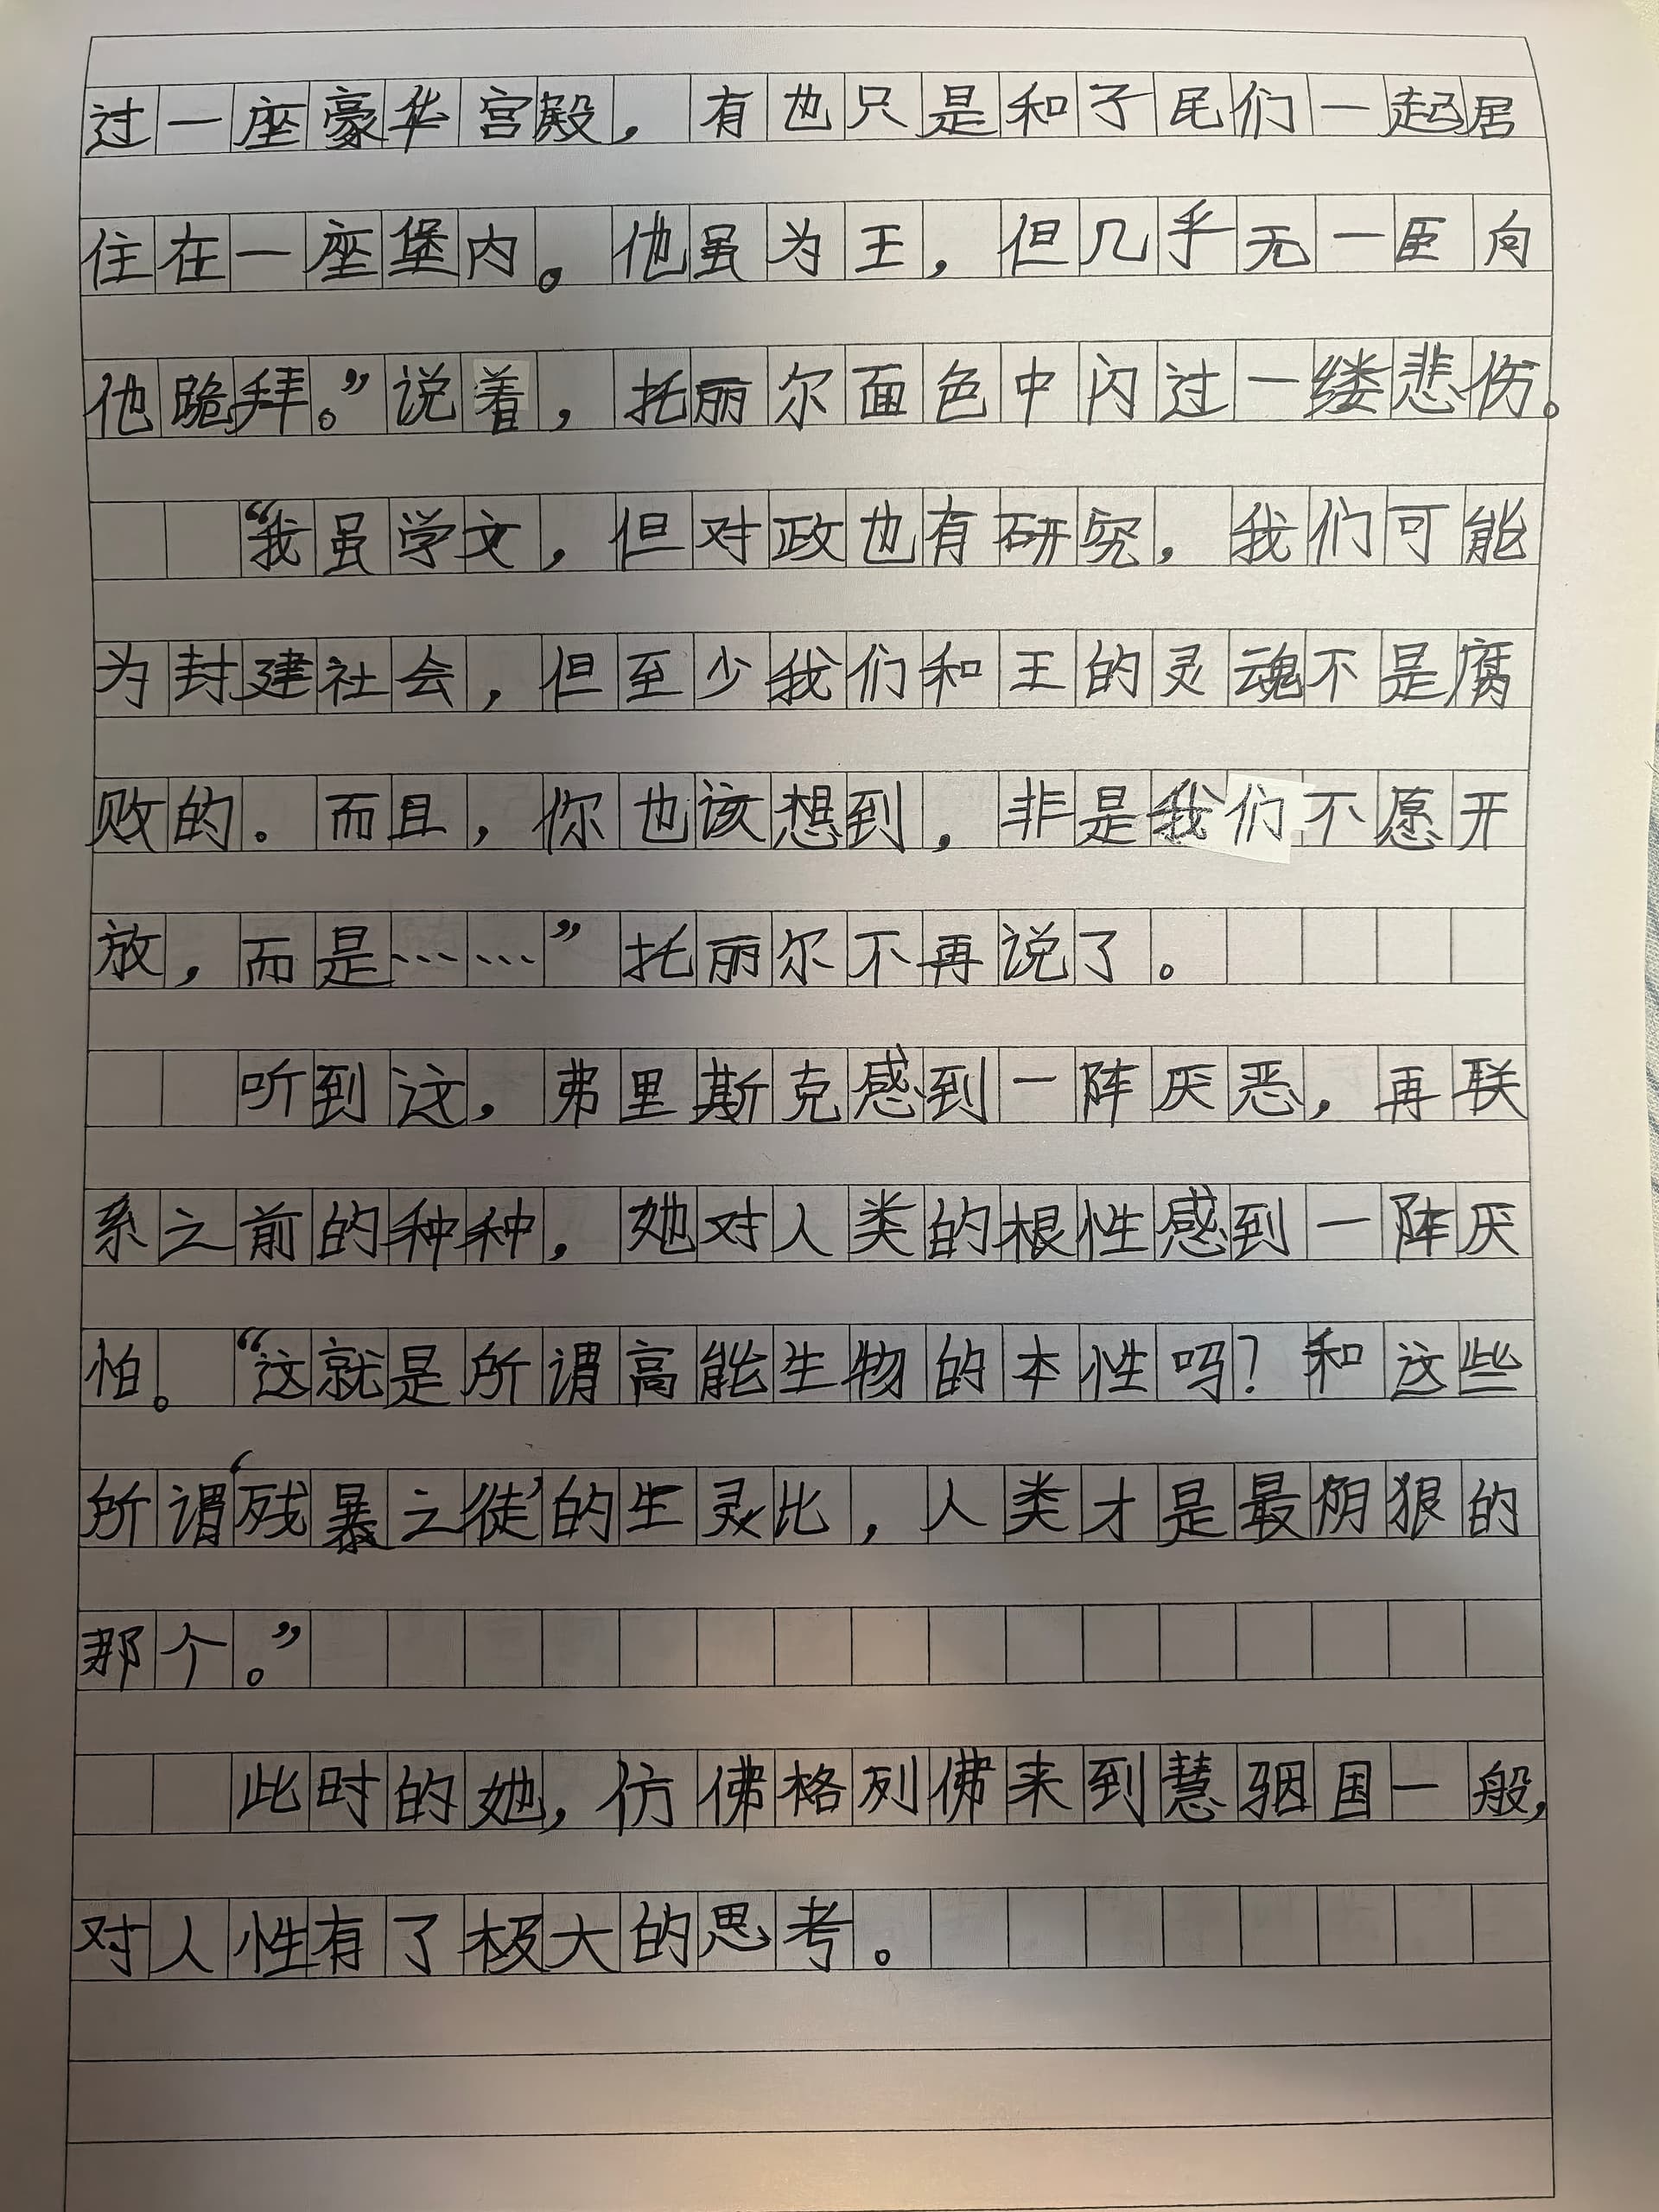 过一座豪华宫殿，有也只是和子民们一起居
住在一座堡内。他虽为王，但几乎无一臣向
他跪拜。”说着，托丽尔面色中闪过一缕悲伤。
“我虽学文，但对政也有研究，我们可能
为封建社会，但至少我们和王的灵魂不是腐
败的。而且，你也该想到，非是我们不愿开
放，而是……”托丽尔不再说了。
听到这，弗里斯克感到一阵厌恶，再联
系之前的种种，她对人类的根性感到一阵厌
怕。“这就是所谓高能生物的本性吗？和这些
所谓‘残暴之徒’的生灵比，人类才是最阴狠的
那个。”
此时的她，仿佛格列佛来到慧骃国一般，
对人性有了极大的思考。